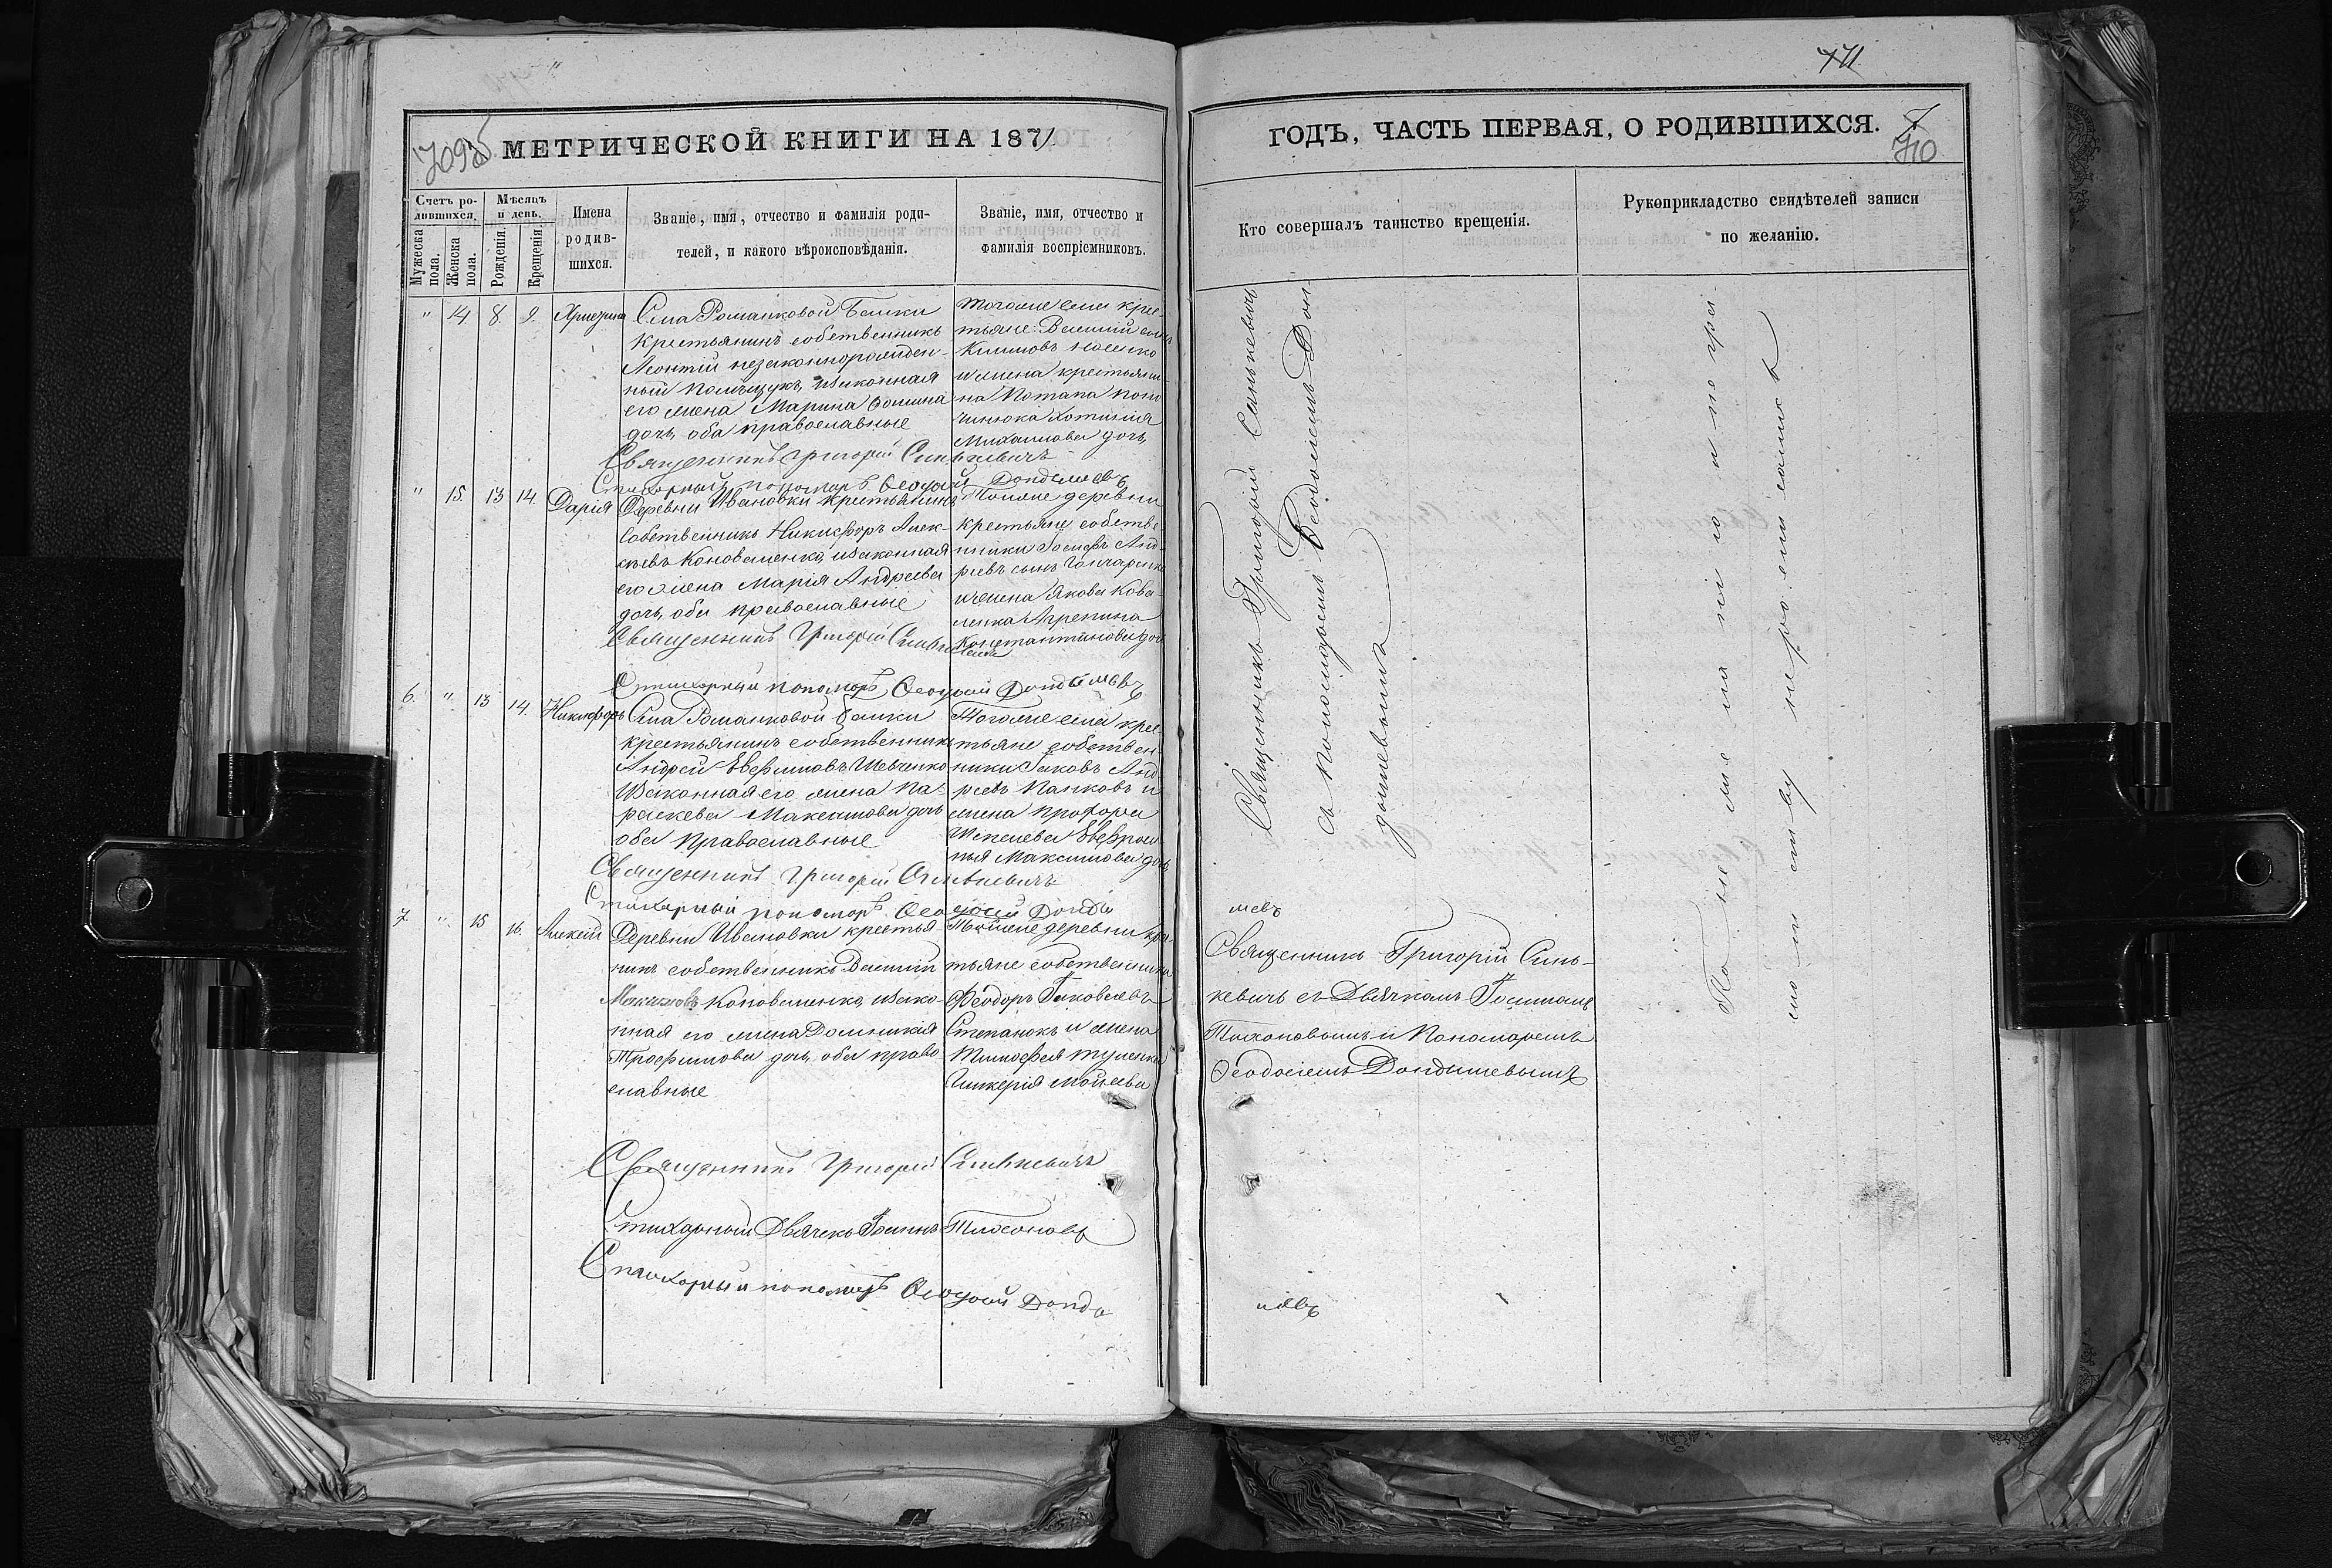 МЕТРИЧЕСКОЙ КНИГИ НА 1871
Счетъ ро-
дившихся.
Мужеска пола.
Женска пола.
Мѣсяцъ
и день.
Рожденія.
Крещенія.
Имена
родив-
шихся.
Званіе, имя, отчество и фамилія роди-
телей, и какого вѣроисповѣданія.
Званіе, имя, отчество и
фамилія воспріемниковъ.
" 14. 8. 9.
Села Романковой Балки
крестьянинъ собственникъ
Леонтій незаконнорожден-
ный Полѣщукъ, и законная
его жена Марина Фомина
дочь, оба православные
Тогоже села крес-
тьяне: Василій
Климовъ
и жена крестьяни-
на Потапа
Михаилова дочь
Священникъ Григорій Синькевичъ
Стихарный пономарь Феодосій Дондышевъ
" 15. 13 14. Дарія
Деревни Ивановки крестьянинъ
собственникъ Никифоръ Алек-
сѣевъ Коноваленко, и законная
его жена Марія Андреева
дочь, оба православные
Тойже деревни
крестьяне собстве-
нники Іосифъ Анд-
реевъ сынъ Гончаренко
и жена Якова Кова-
ленка Агрепина
Константинова дочь
Священникъ Григорій Синькевичъ
Стихарный пономарь Феодосій Дондышевъ
6. " 13 14. Никифоръ
Села Романковой Балки
крестьянинъ собственникъ
Андрей Евфимовъ Шевченко
и законная его жена Па-
раскева Максимова дочь
оба православные
Тогоже села крес-
тьяне собствен-
ники Іаковъ Анд-
реевъ Панковъ и
жена Прохора
Шепелева Евфроси-
нья Максимова дочь
Священникъ Григорій Синькевичъ
Стихарный пономарь Феодосій Донды
7. " 15 16. Алексій
Деревни Ивановки крестья-
нинъ собственникъ Василій
Коноваленко, и зако-
нная его жена Домникія
Трофимова дочь, оба право-
славные
Тойже деревни кре-
тьяне собственники
Феодоръ Іаковлевъ
Степанокъ и жена
Тимофея
Гликерія Моисеева
Священникъ Григорій Синькевичъ
Стихарный Дьячекъ Іоаннъ Тихоновъ
Стихарный пономарь Феодосій Донды
711.
ГОДЪ, ЧАСТЬ ПЕРВАЯ, О РОДИВШИХСЯ.
710
Кто совершалъ таинство крещенія.
Рукоприкладство свидѣтелей записи
по желанію.
Священникъ Григорій Синькевичъ
съ пономаремъ Феодосіемъ Дон
дышевымъ
шевъ
Священникъ Григорій Синь-
кевичъ съ Дьячкомъ Іоанномъ
Тихоновымъ и Пономаремъ
Феодосіемъ Дондышевымъ
шевъ